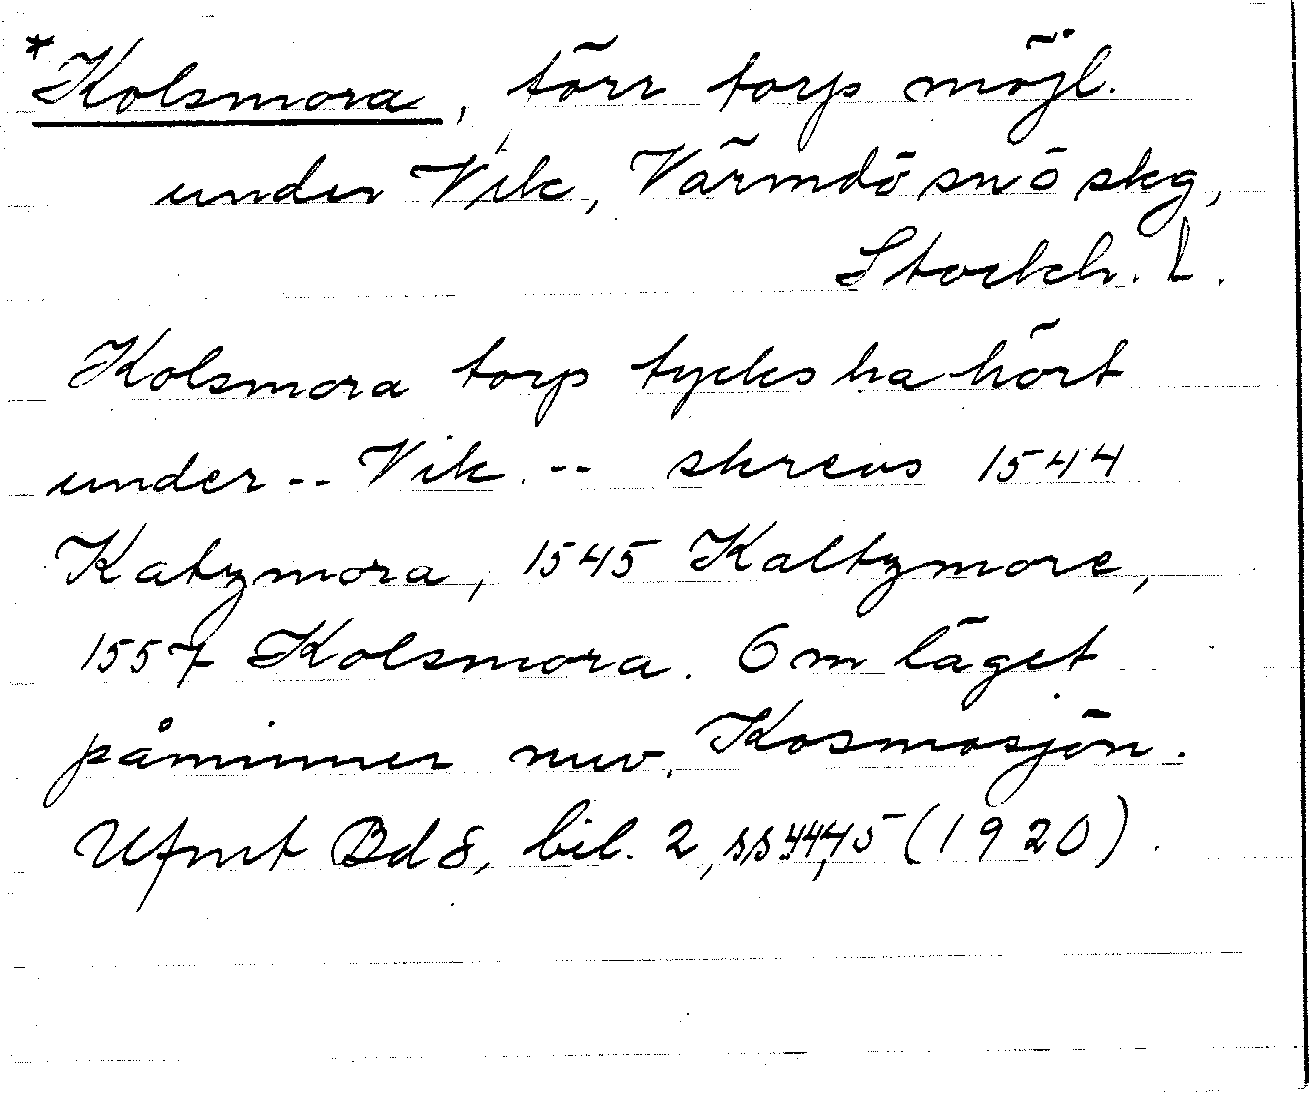 *Kolsmora, förr torp möjl.
under Vik, Värmdö snö skg,
Stockh. l.
Kolsmora torp tycks ha hört
under -- Vik -- skrevs 1544
Katzmora, 1545 Kaltzmore,
1557 Kolsmora. Om läget
påminner nuv. Kosmosjön.
Ufmt Bd 8, bil. 2, (1920).